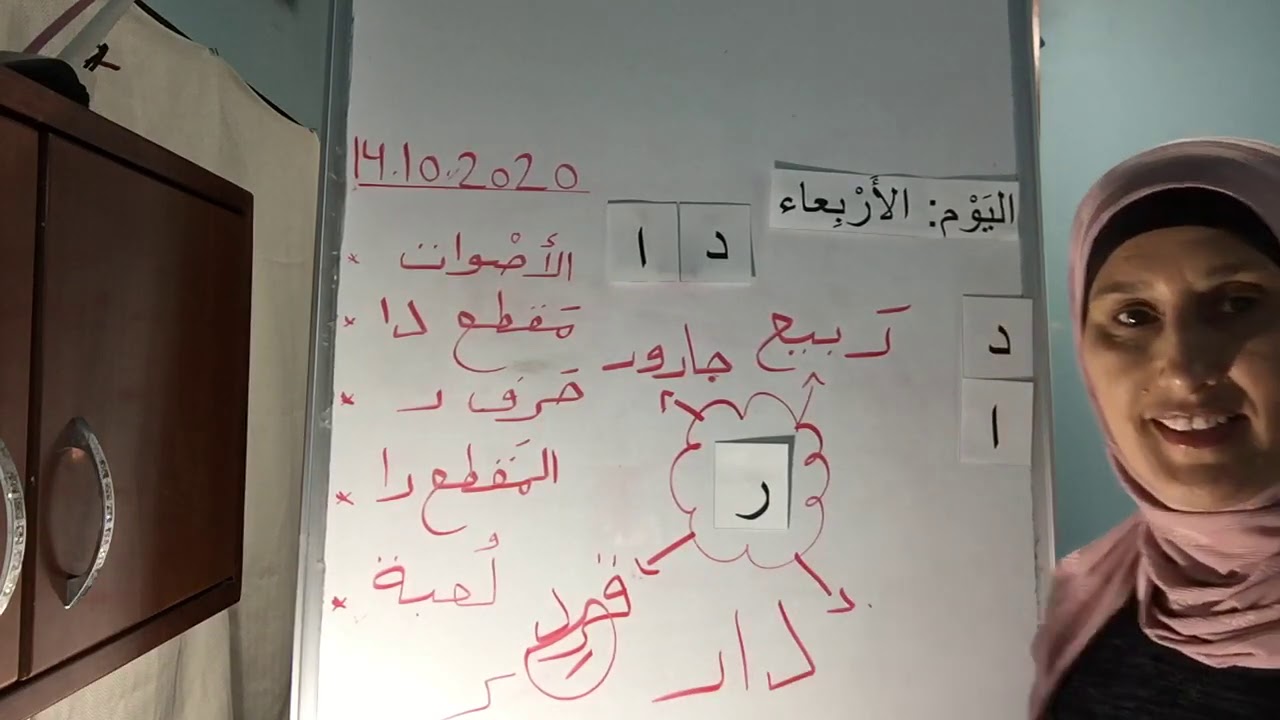 14.10.2020
اليَوْم: الأَرْبِعاء
د ا
د
ا
* الأَصْوات
* مَقطع دا
* حَرف ر
* المَقطع را
* لُعبة
ربيع
جارور
ر
قرد
دار
ر